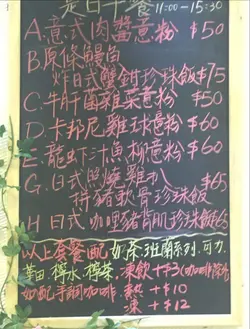 是日午餐 11:00-15:30
A.意式肉醬意粉 $50
B.原條鱔皇
炸日式蟹鉗珍珠飯$75
C.牛肝菌雜菜意粉 $50
D.卡邦尼雞球意粉 $60
E.龍虾汁魚柳意粉 $60
G.日式照燒雞扒 $65
拼豬軟骨珍珠飯
H 日式咖哩豬肩肌珍珠飯$65
以上套餐配 班蘭系列.可力.
華田 檸水、檸茶 凍飲+$3(咖啡除外)
如配手調咖啡 熱 +$10
凍 +$12